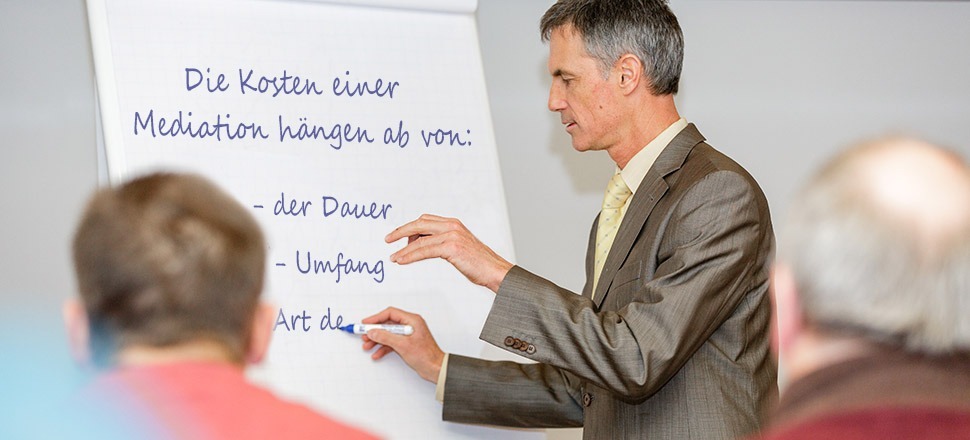 Die Kosten einer
Mediation hängen ab von:
- der Dauer
- Umfang
Art de